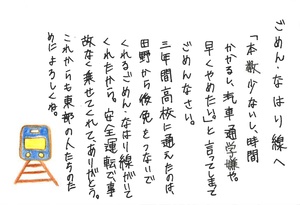 ごめん・なはり線へ
「本数少ないし、時間
かかるし、汽車通学嫌や。
早くやめたい。」と言ってしまって
ごめんなさい。
三年間高校に通えたのは、
田野から後免をつないで
くれるごめん・なはり線がいて
くれたから。安全運転で、事
故なく乗せてくれて、ありがとう。
これからも東部の人たちのた
めによろしくね。